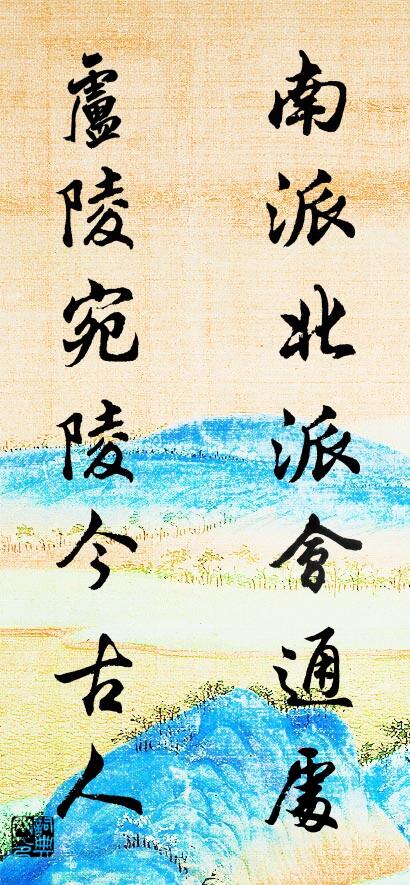 南派北派會通處
廬陵宛陵今古人